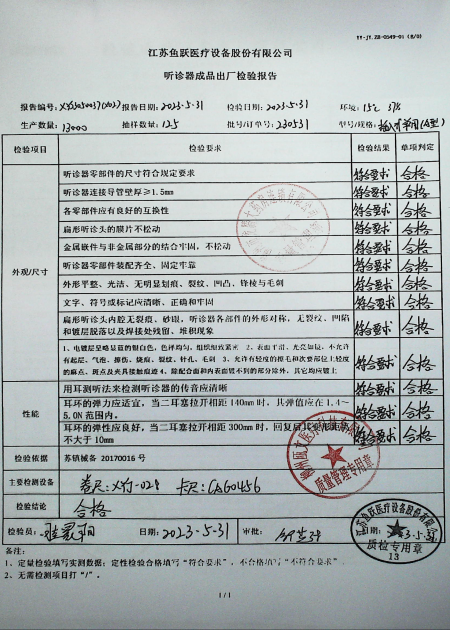 YY-JY.ZB-0549-01 (B/0)
江苏鱼跃医疗设备股份有限公司
听诊器成品出厂检验报告
报告编号: 报告日期: 2023-5-31 检验日期: 2023-5-31 环境: 15℃ 37%
生产数量: 13000 抽样数量: 125 批号/订单号: 230531 型号/规格:
检验项目 检验要求 检验结果 单项判定
外观/尺寸
听诊器零部件的尺寸符合规定要求 符合要求 合格
听诊器连接导管壁厚≥1.5mm 符合要求 合格
各零部件应有良好的互换性 符合要求 合格
扁形听诊头的膜片不松动 符合要求 合格
金属嵌件与非金属部分的结合牢固，不松动 符合要求 合格
听诊器零部件装配齐全，固定牢靠 符合要求 合格
外形平整、光洁、无明显划痕、裂纹、凹凸、锋棱与毛刺 符合要求 合格
文字、符号或标记应清晰、正确和牢固 符合要求 合格
扁形听诊头内腔无裂痕、砂眼，听诊器各部件的外形对称，无裂纹、凹陷
和镀层脱落以及焊接处残留、堆积现象 符合要求 合格
1、电镀层呈略显蓝的银白色，色泽均匀，组织细致紧密 2、表面平滑、光亮如镜，不允许
有起层、气泡、擦伤、烧痕、裂纹、针孔、毛刺 3、允许有轻度的挂毛和次要部位上轻度
的麻点、斑点及夹具接触痕迹 4、除配合面和内表面镀不到的部分除外，其它均应镀上 符合要求 合格
性能
用耳测听法来检测听诊器的传音应清晰 符合要求 合格
耳环的弹力应适宜，当二耳塞拉开相距 140mm 时，其弹值应在 1.4～
5.0N 范围内。 符合要求 合格
耳环的弹性应良好，当二耳塞拉开相距 300mm 时，回复后其变形距离
不大于 10mm 符合要求 合格
检验依据 苏镇械备 20170016 号
主要检测设备 卷尺:XY-028 卡尺:CAG0456
检验结论 合格
检验员: 日期: 2023-5-31 审批: 日期: 2023.5.31
质量管理专用章
江苏鱼跃医疗设备股份有限公司
质检专用章
13
备注：
1、定量检验填写实测数据；定性检验合格填写“符合要求”，不合格填写“不符合要求”。
2、无需检测项目打“/”。
1/1